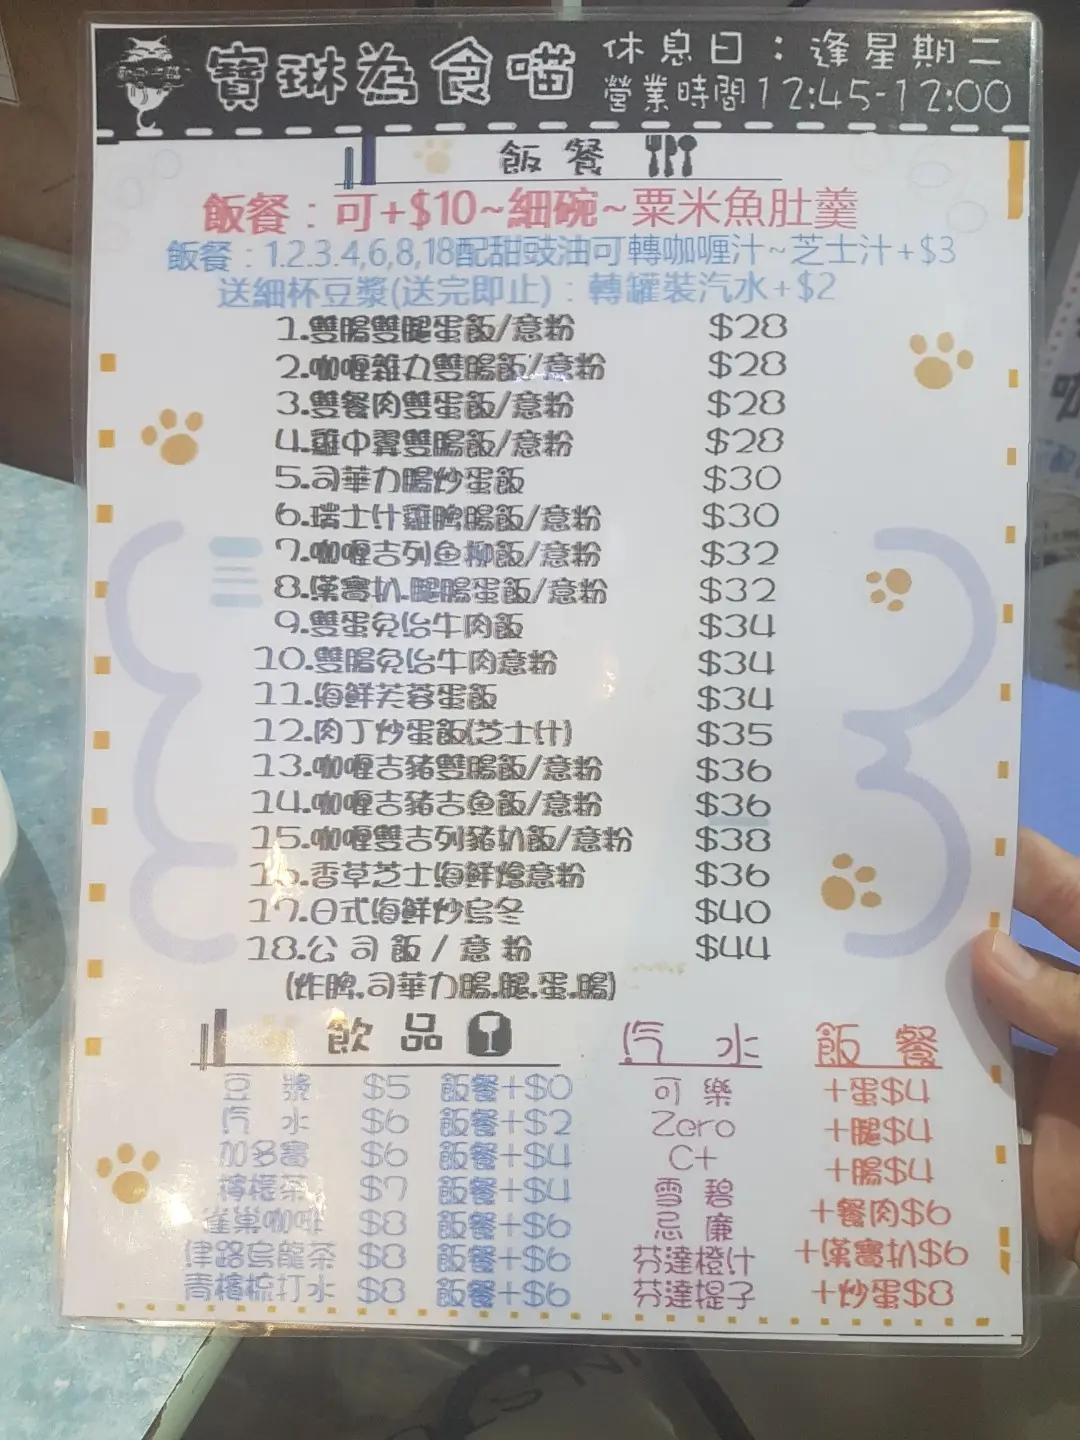 寶琳為食喵
休息日：逢星期二
營業時間12:45-12:00
飯餐
飯餐：可+$10~細碗~粟米魚肚羹
飯餐：1.2.3.4,6,8,18配甜豉油可轉咖喱汁~芝士汁+$3
送細杯豆漿(送完即止)：轉罐裝汽水+$2
1.雙腸雙腿蛋飯/意粉 $28
2.咖喱雞力雙腸飯/意粉 $28
3.雙餐肉雙蛋飯/意粉 $28
4.雞中翼雙腸飯/意粉 $28
5.司華力腸炒蛋飯 $30
6.瑞士汁雞脾腸飯/意粉 $30
7.咖喱吉列魚柳飯/意粉 $32
8.漢寶扒.腿腸蛋飯/意粉 $32
9.雙蛋免治牛肉飯 $34
10.雙腸免治牛肉意粉 $34
11.海鮮芙蓉蛋飯 $34
12.肉丁炒蛋飯(芝士汁) $35
13.咖喱吉豬雙腸飯/意粉 $36
14.咖喱吉豬吉魚飯/意粉 $36
15.咖喱雙吉列豬扒飯/意粉 $38
16.香草芝士海鮮燴意粉 $36
17.日式海鮮炒烏冬 $40
18.公司飯/意粉 $44
(炸脾.司華力腸.腿.蛋.腸)
飲品
豆漿 $5 飯餐+$0
汽水 $6 飯餐+$2
加多寶 $6 飯餐+$4
檸檬茶 $7 飯餐+$4
雀巢咖啡 $8 飯餐+$6
津路烏龍茶 $8 飯餐+$6
青檸梳打水 $8 飯餐+$6
汽水
可樂
Zero
C+
雪碧
忌廉
芬達橙汁
芬達提子
飯餐
+蛋$4
+腿$4
+腸$4
+餐肉$6
+漢寶扒$6
+炒蛋$8